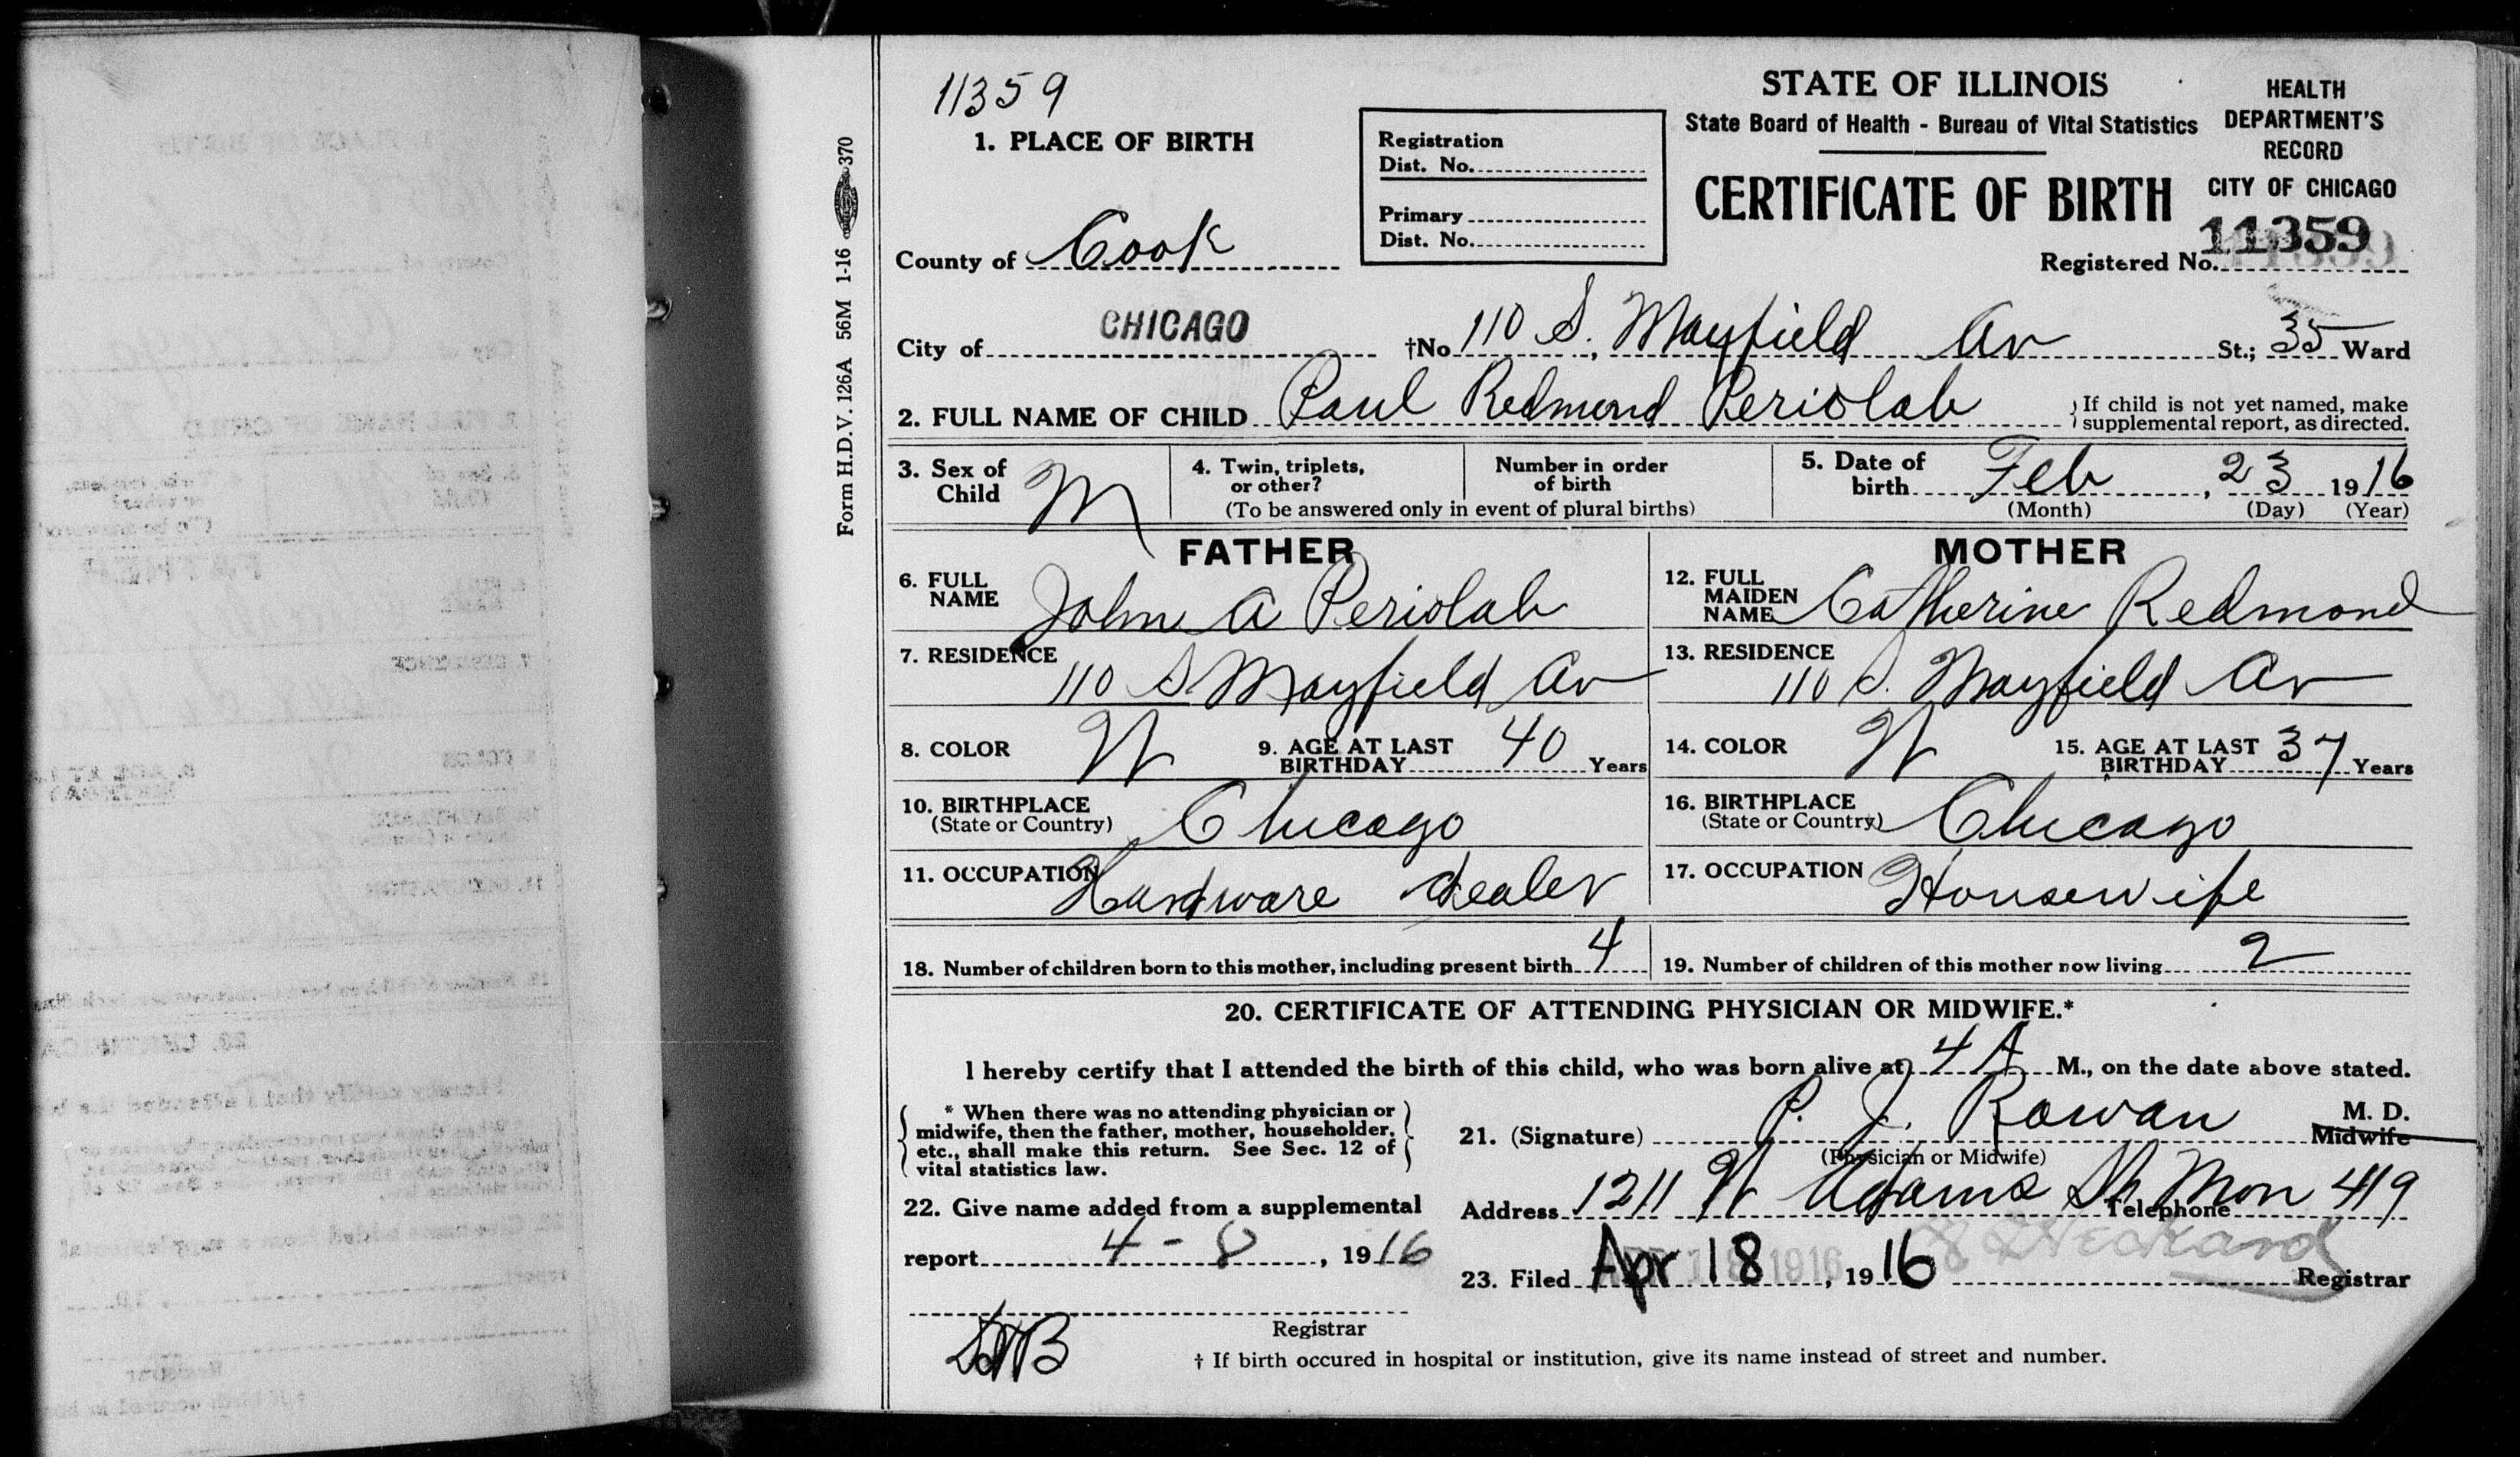 11359
1. PLACE OF BIRTH
Registration
Dist. No.
Primary
Dist. No.
STATE OF ILLINOIS
State Board of Health - Bureau of Vital Statistics
CERTIFICATE OF BIRTH
HEALTH
DEPARTMENT'S
RECORD
CITY OF CHICAGO
11359
Registered No.
County of Cook
City of CHICAGO †No 110 S. Mayfield Av St.; 35 Ward
2. FULL NAME OF CHILD Paul Redmond Periolab
If child is not yet named, make
supplemental report, as directed.
3. Sex of
Child M
4. Twin, triplets,
or other?
Number in order
of birth
(To be answered only in event of plural births)
5. Date of
birth Feb, 23 1916
(Month) (Day) (Year)
FATHER
6. FULL
NAME John A Periolab
7. RESIDENCE
110 S Mayfield Av
8. COLOR W 9. AGE AT LAST
BIRTHDAY 40 Years
10. BIRTHPLACE
(State or Country) Chicago
11. OCCUPATION
Hardware dealer
MOTHER
12. FULL
MAIDEN
NAME Catherine Redmond
13. RESIDENCE
110 S. Mayfield Av
14. COLOR W 15. AGE AT LAST
BIRTHDAY 37 Years
16. BIRTHPLACE
(State or Country) Chicago
17. OCCUPATION Housewife
18. Number of children born to this mother, including present birth 4
19. Number of children of this mother now living 2
20. CERTIFICATE OF ATTENDING PHYSICIAN OR MIDWIFE.*
I hereby certify that I attended the birth of this child, who was born alive at 4 A M., on the date above stated.
* When there was no attending physician or
midwife, then the father, mother, householder,
etc., shall make this return. See Sec. 12 of
vital statistics law.
21. (Signature) P. J. Rowan M. D.
Midwife
(Physician or Midwife)
Address 1211 W Adams St Telephone Mon 419
22. Give name added from a supplemental
report 4-8, 1916
23. Filed Apr 18, 1916 Registrar
APR 18 1916
Registrar
† If birth occured in hospital or institution, give its name instead of street and number.
Form H.D.V. 126A 56M 1-16 370